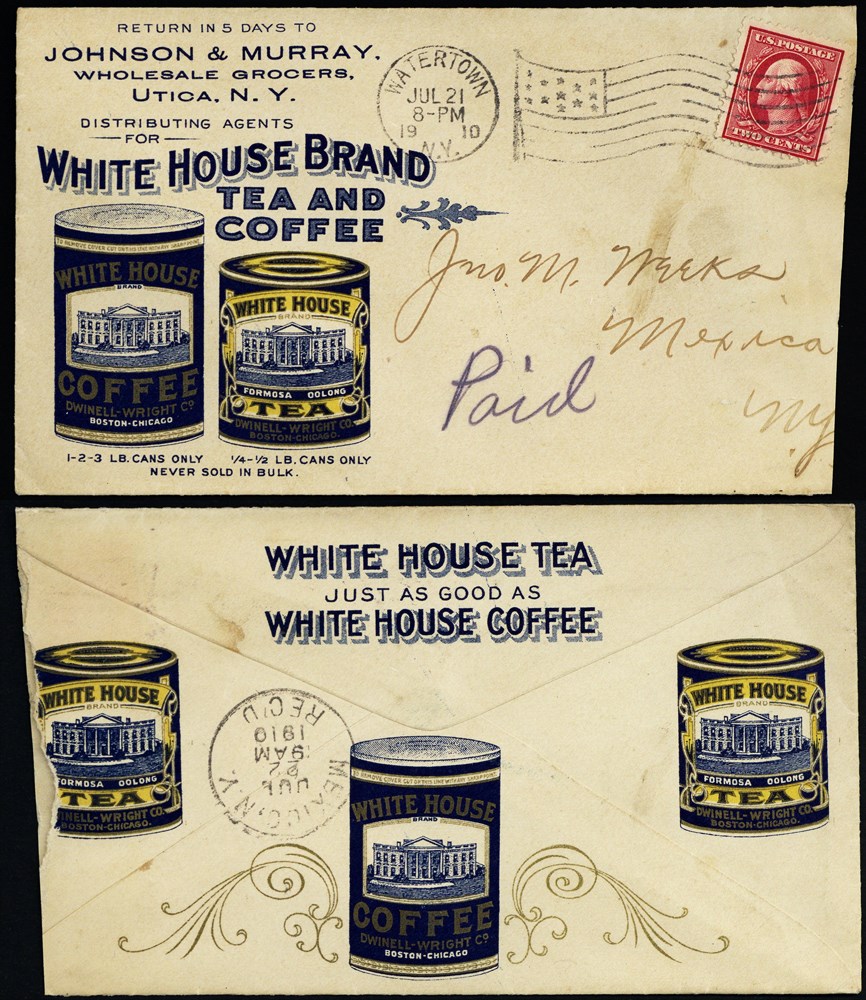 RETURN IN 5 DAYS TO
JOHNSON & MURRAY,
WHOLESALE GROCERS,
UTICA, N. Y.
DISTRIBUTING AGENTS
FOR
WHITE HOUSE BRAND
TEA AND
COFFEE
WATERTOWN
JUL 21
8-PM
19 10
N.Y.
U.S. POSTAGE
TWO CENTS
TO REMOVE COVER CUT ON THIS LINE WITH ANY SHARP POINT
WHITE HOUSE
BRAND
COFFEE
DWINELL-WRIGHT CO
BOSTON-CHICAGO
WHITE HOUSE
BRAND
FORMOSA OOLONG
TEA
DWINELL-WRIGHT CO.
BOSTON-CHICAGO.
1-2-3 LB. CANS ONLY 1/4-1/2 LB. CANS ONLY
NEVER SOLD IN BULK.
Jno. M. Weeks
Mexico
NY
Paid
WHITE HOUSE TEA
JUST AS GOOD AS
WHITE HOUSE COFFEE
WHITE HOUSE
BRAND
FORMOSA OOLONG
TEA
DWINELL-WRIGHT CO.
BOSTON-CHICAGO.
MEXICO, N.Y.
JUL
22
9AM
1910
REC'D
TO REMOVE COVER CUT ON THIS LINE WITH ANY SHARP POINT
WHITE HOUSE
BRAND
COFFEE
DWINELL-WRIGHT CO
BOSTON-CHICAGO
WHITE HOUSE
BRAND
FORMOSA OOLONG
TEA
DWINELL-WRIGHT CO.
BOSTON-CHICAGO.